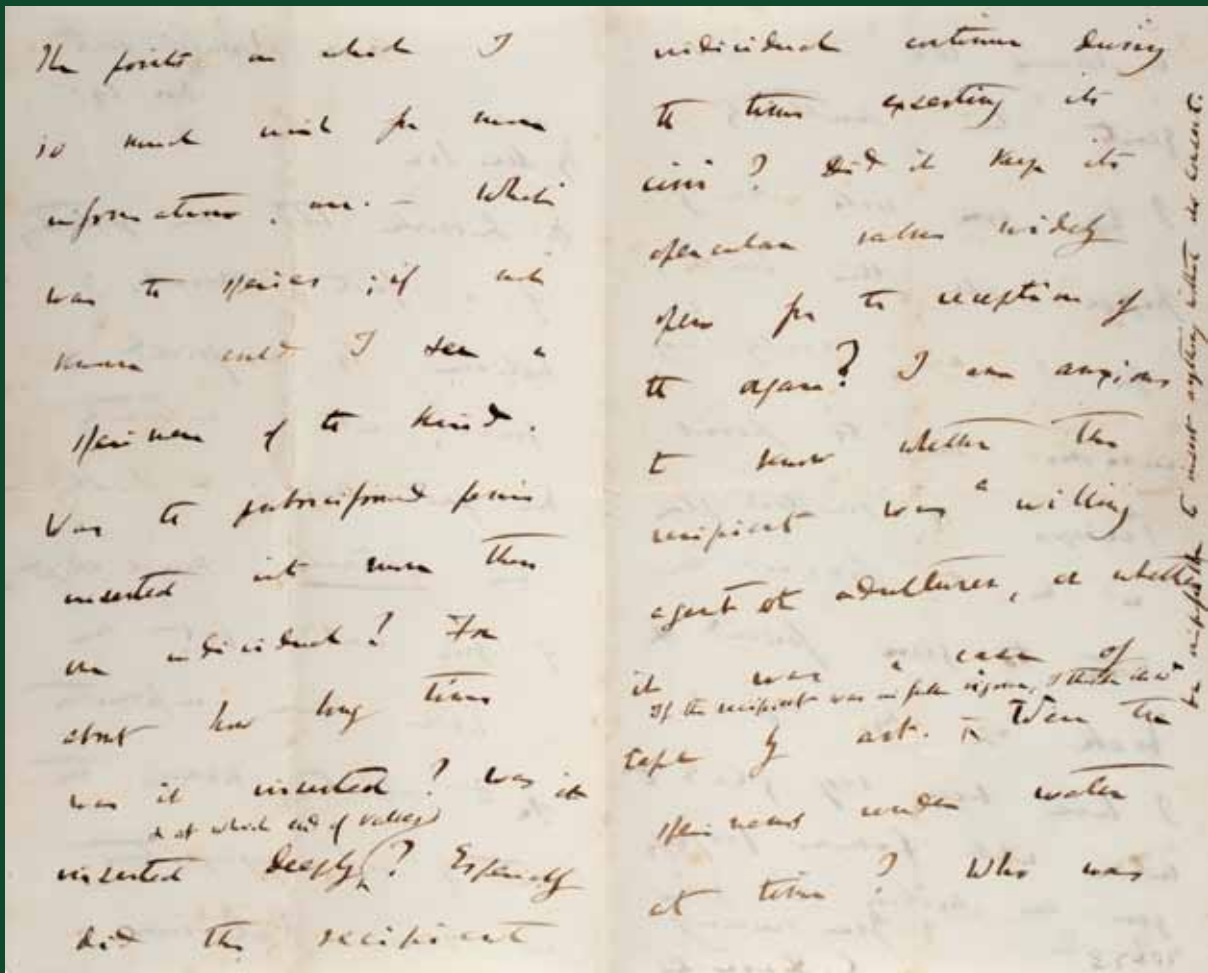 The points on which I
so much wish for more
information, are. What
was the species; if not
known could I see a
specimen of the kind.
Was the probosciformed penis
inserted into more than
one individual? For
about how long time
was it inserted? was it
& at which end of valves
inserted deeply? Especially
did the recipient
individual continue during
the time exserting its
cirri? Did it keep its
opercular valves widely
open for the reception of
the organ? I am anxious
to know whether the
recipient was a willing
agent or adulterer, or whether
it was a case of
If the recipient was in full vigour, I think it wd
rape by act. Were the
specimens under water
at time? Who was
be impossible to insert anything without its consent.